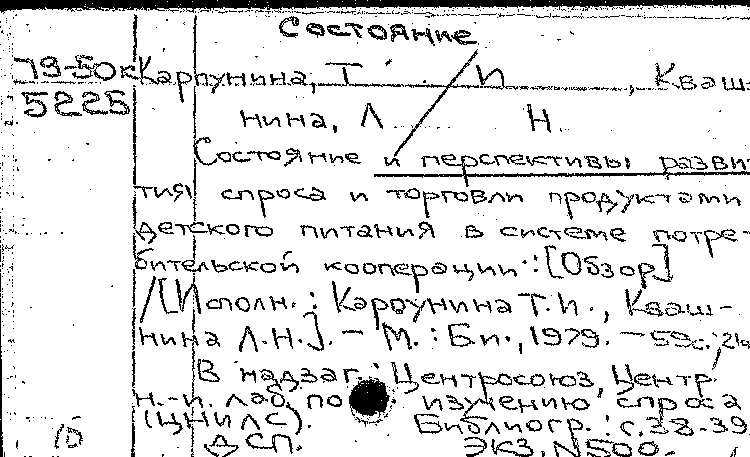 Состояние
79-50к Карпунина, Т. И., Кваш-
5225
нина, Л. Н.
Состояние и перспективы разви-
тия спроса и торговли продуктами
детского питания в системе потре-
бительской кооперации : [Обзор]
/[Исполн. : Карпунина Т. И., Кваш-
нина Л. Н.]. – М. : Б.и., 1979. – 59с.;
В надзаг. : Центросоюз, Центр.
н.-и. лаб. по изучению спроса
(ЦНИЛС). Библиогр. : с. 38-39
10 ДСП. ЭКЗ. N 500.